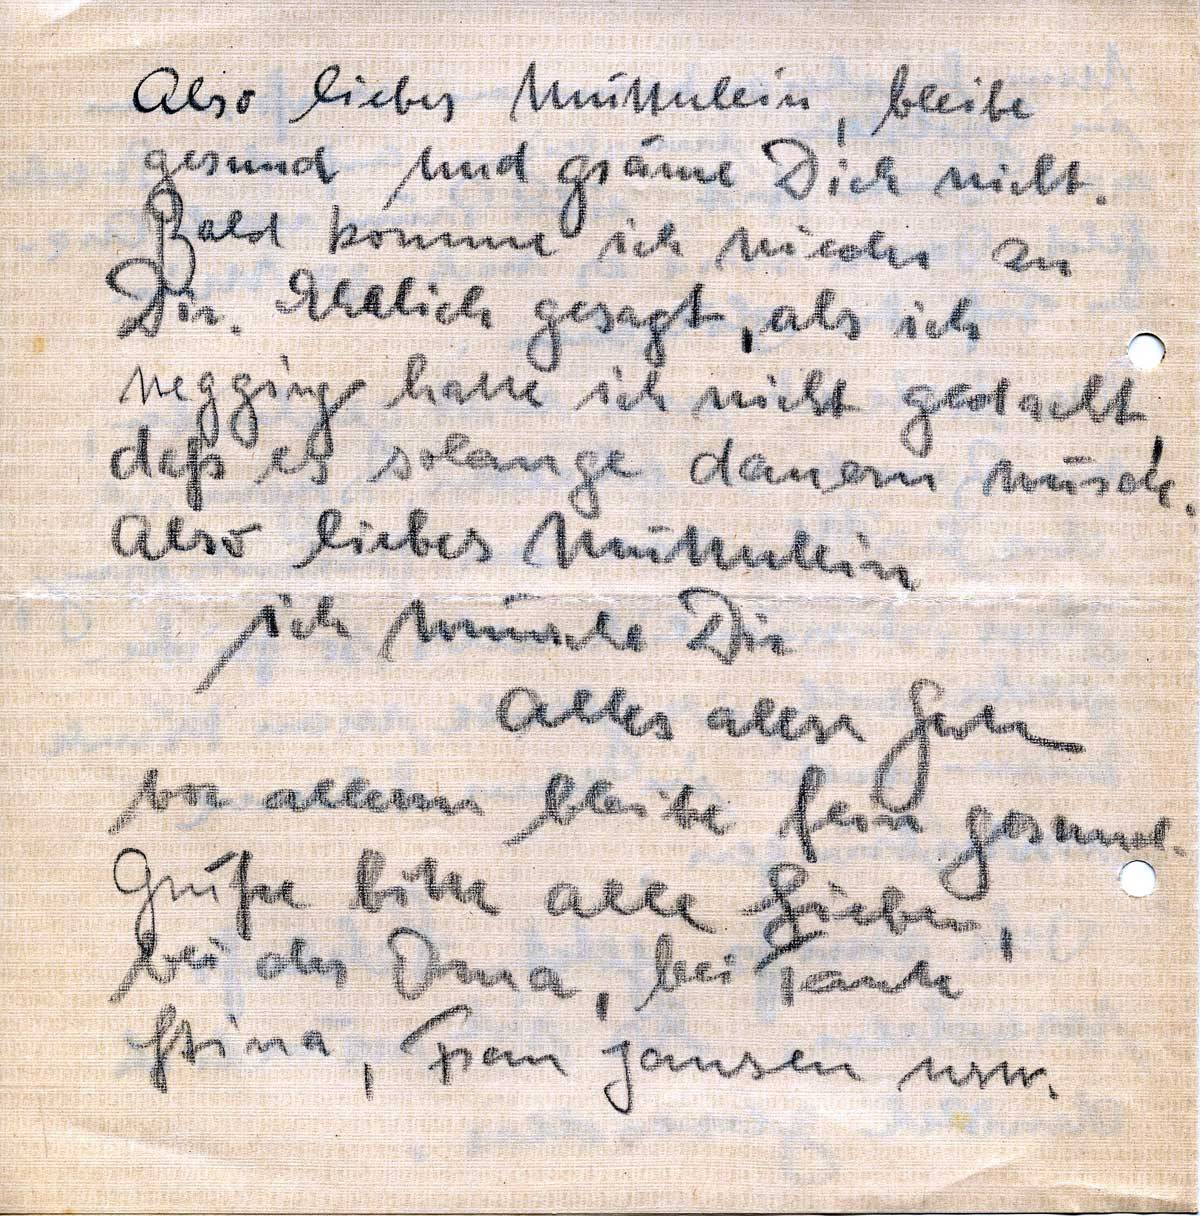 Also liebes Muttilein, bleibe
gesund und gräme Dich nicht.
Bald komme ich wieder zu
Dir. Ehrlich gesagt, als ich
wegging hatte ich nicht gedacht,
daß es solange dauern würde.
Also liebes Muttilein
ich wünsche Dir
Alles alles Gute
vor allem bleibe fein gesund.
Grüße bitte alle Lieben,
bei der Oma, bei Tante
Stina, Frau Jansen usw.